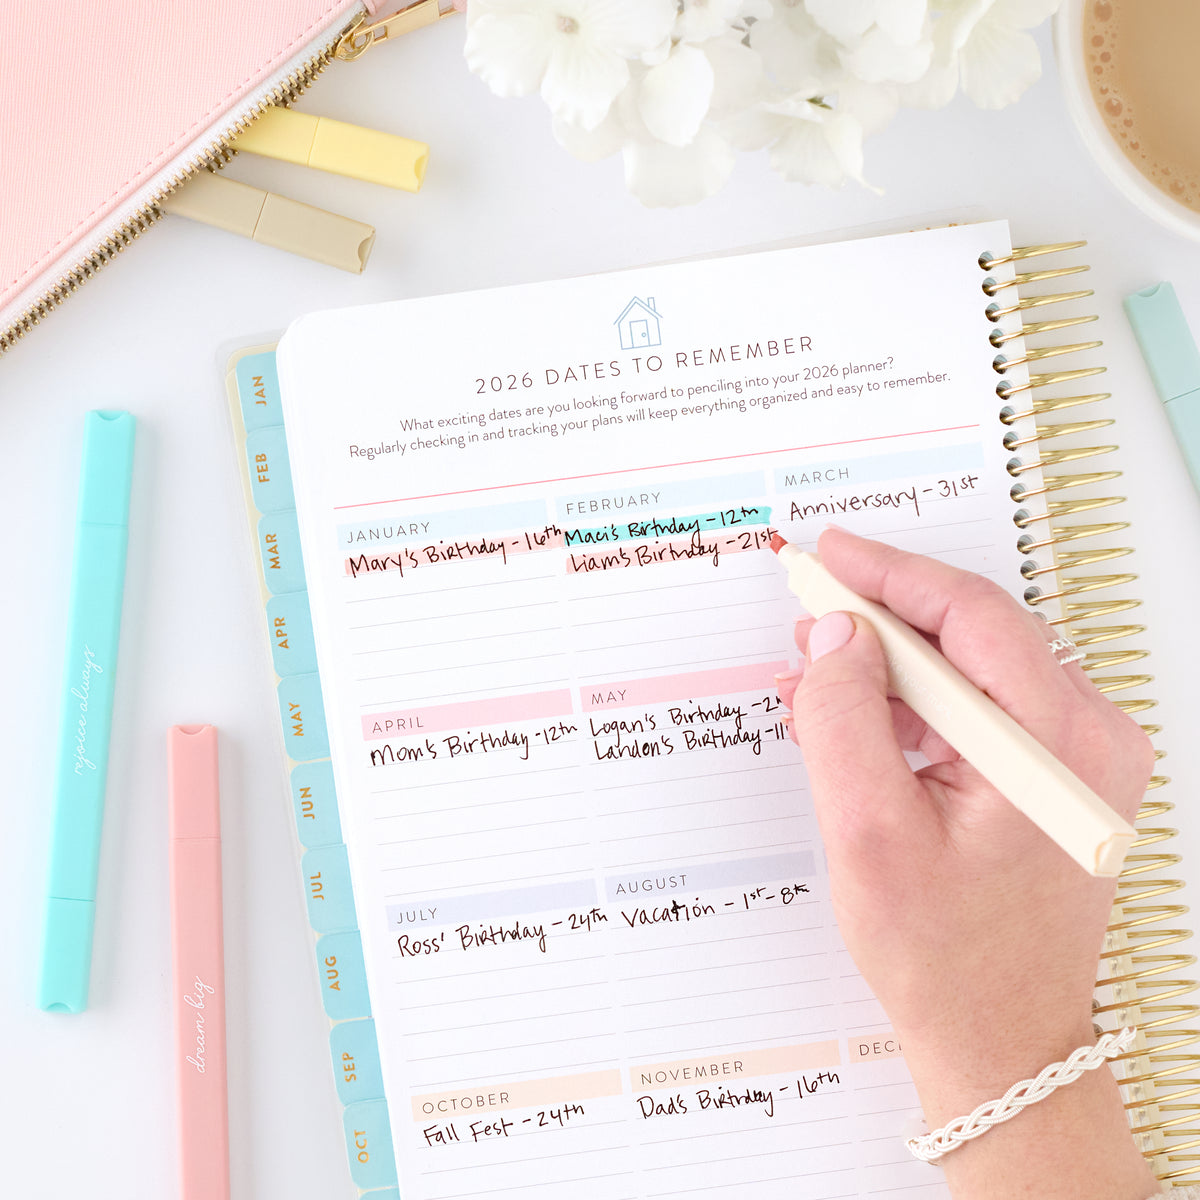 2026 DATES TO REMEMBER
What exciting dates are you looking forward to penciling into your 2026 planner?
Regularly checking in and tracking your plans will keep everything organized and easy to remember.
JANUARY
Mary's Birthday - 16th
FEBRUARY
Maci's Birthday - 12th
Liam's Birthday - 21st
MARCH
Anniversary - 31st
APRIL
Mom's Birthday - 12th
MAY
Logan's Birthday - 2
Landon's Birthday - 11
JULY
Ross' Birthday - 24th
AUGUST
Vacation - 1st - 8th
OCTOBER
Fall Fest - 24th
NOVEMBER
Dad's Birthday - 16th
JAN
FEB
MAR
APR
MAY
JUN
JUL
AUG
SEP
OCT
rejoice always
dream big